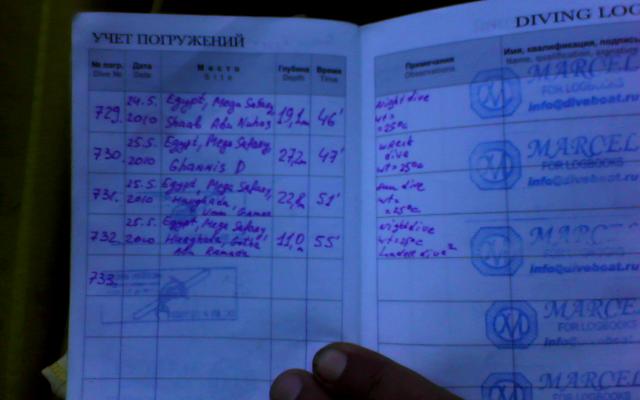 УЧЕТ ПОГРУЖЕНИЙ
№ погр. Дата Место Глубина Время
Dive № Date Site Depth Time
729. 24.5. 2010 Egypt, Mega Safary, Shaab Abu Nuhas 19,1m 46'
730. 25.5. 2010 Egypt, Mega Safary, Ghannis D 27,2m 47'
731. 25.5. 2010 Egypt, Mega Safary, Hurghada, 22,8m 51'
732. 25.5. 2010 Egypt, Mega Safary Hurghada, Abu Ramada 11,0m 55'
733.
DIVING LOG
Примечания Имя, квалификация, подпись
Observations Name, qualification,
Night dive
wt=
=25°C
wreck
dive
wt=25°C
dive
wt=
=25°C
Night dive
wt=25°C
MARCEL
FOR LOGBOOKS
info@diveboat.ru
MARCEL
FOR LOGBOOKS
info@diveboat.ru
MARCEL
info@diveboat.ru
MARCEL
FOR LOGBOOKS
info@diveboat.ru
MARCEL
FOR LOGBOOKS
MARCEL